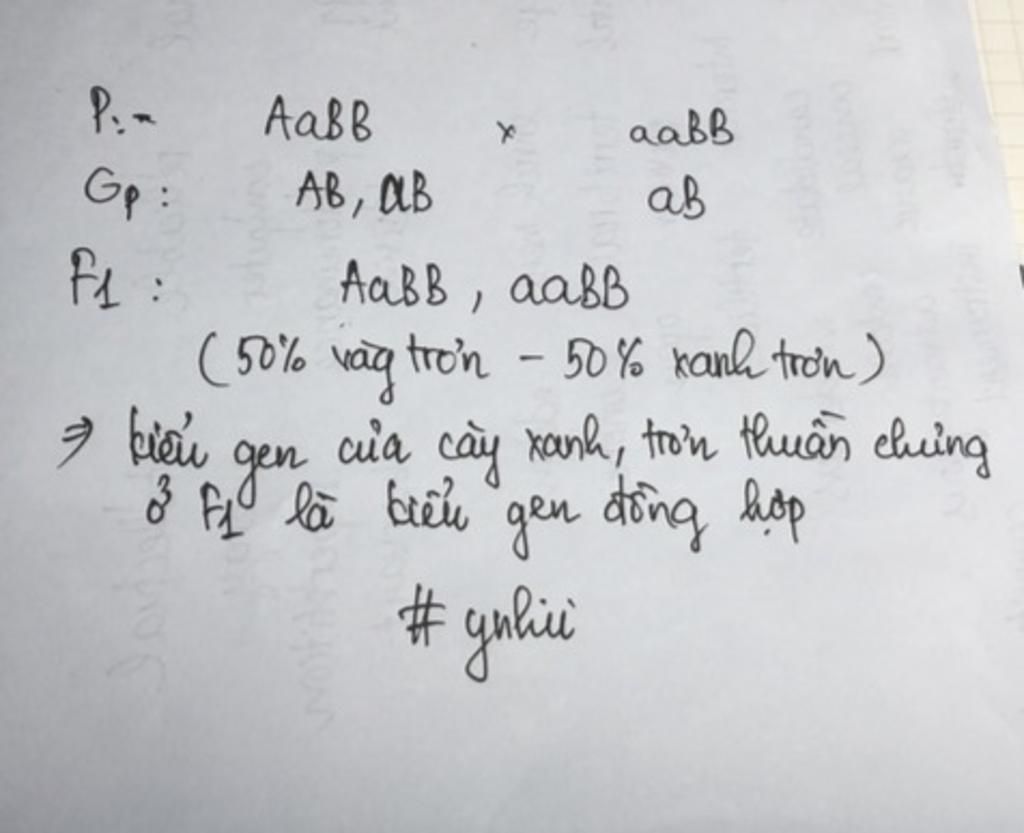 P:- AaBB x aaBB
Gp: AB, aB aB
F1: AaBB, aaBB
(50% vàg trơn - 50% xanh trơn)
⇒ kiểu gen của cây xanh, trơn thuần chủng
ở F1 là kiểu gen đồng hợp
# ynhii